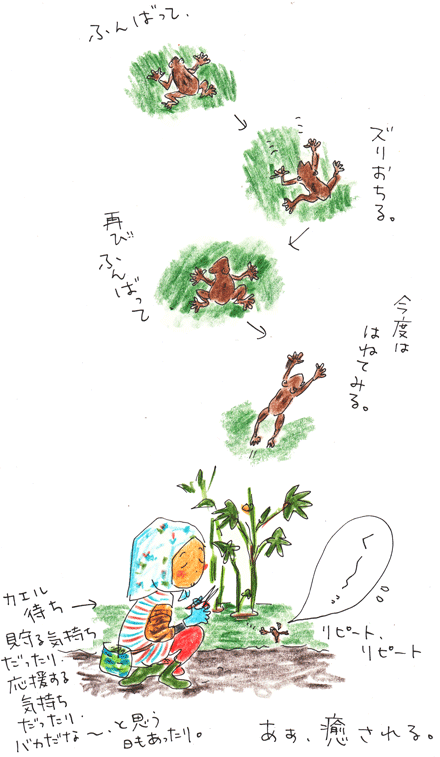 ふんばって、
ズリおちる。
再び
ふんばって
今度は
はねてみる。
く〜〜
リピート、
リピート
カエル
待ち
見守る気持ち
だったり・
応援する
気持ち
だったり・
バカだな〜、と思う
日もあったり。
あぁ、癒される。